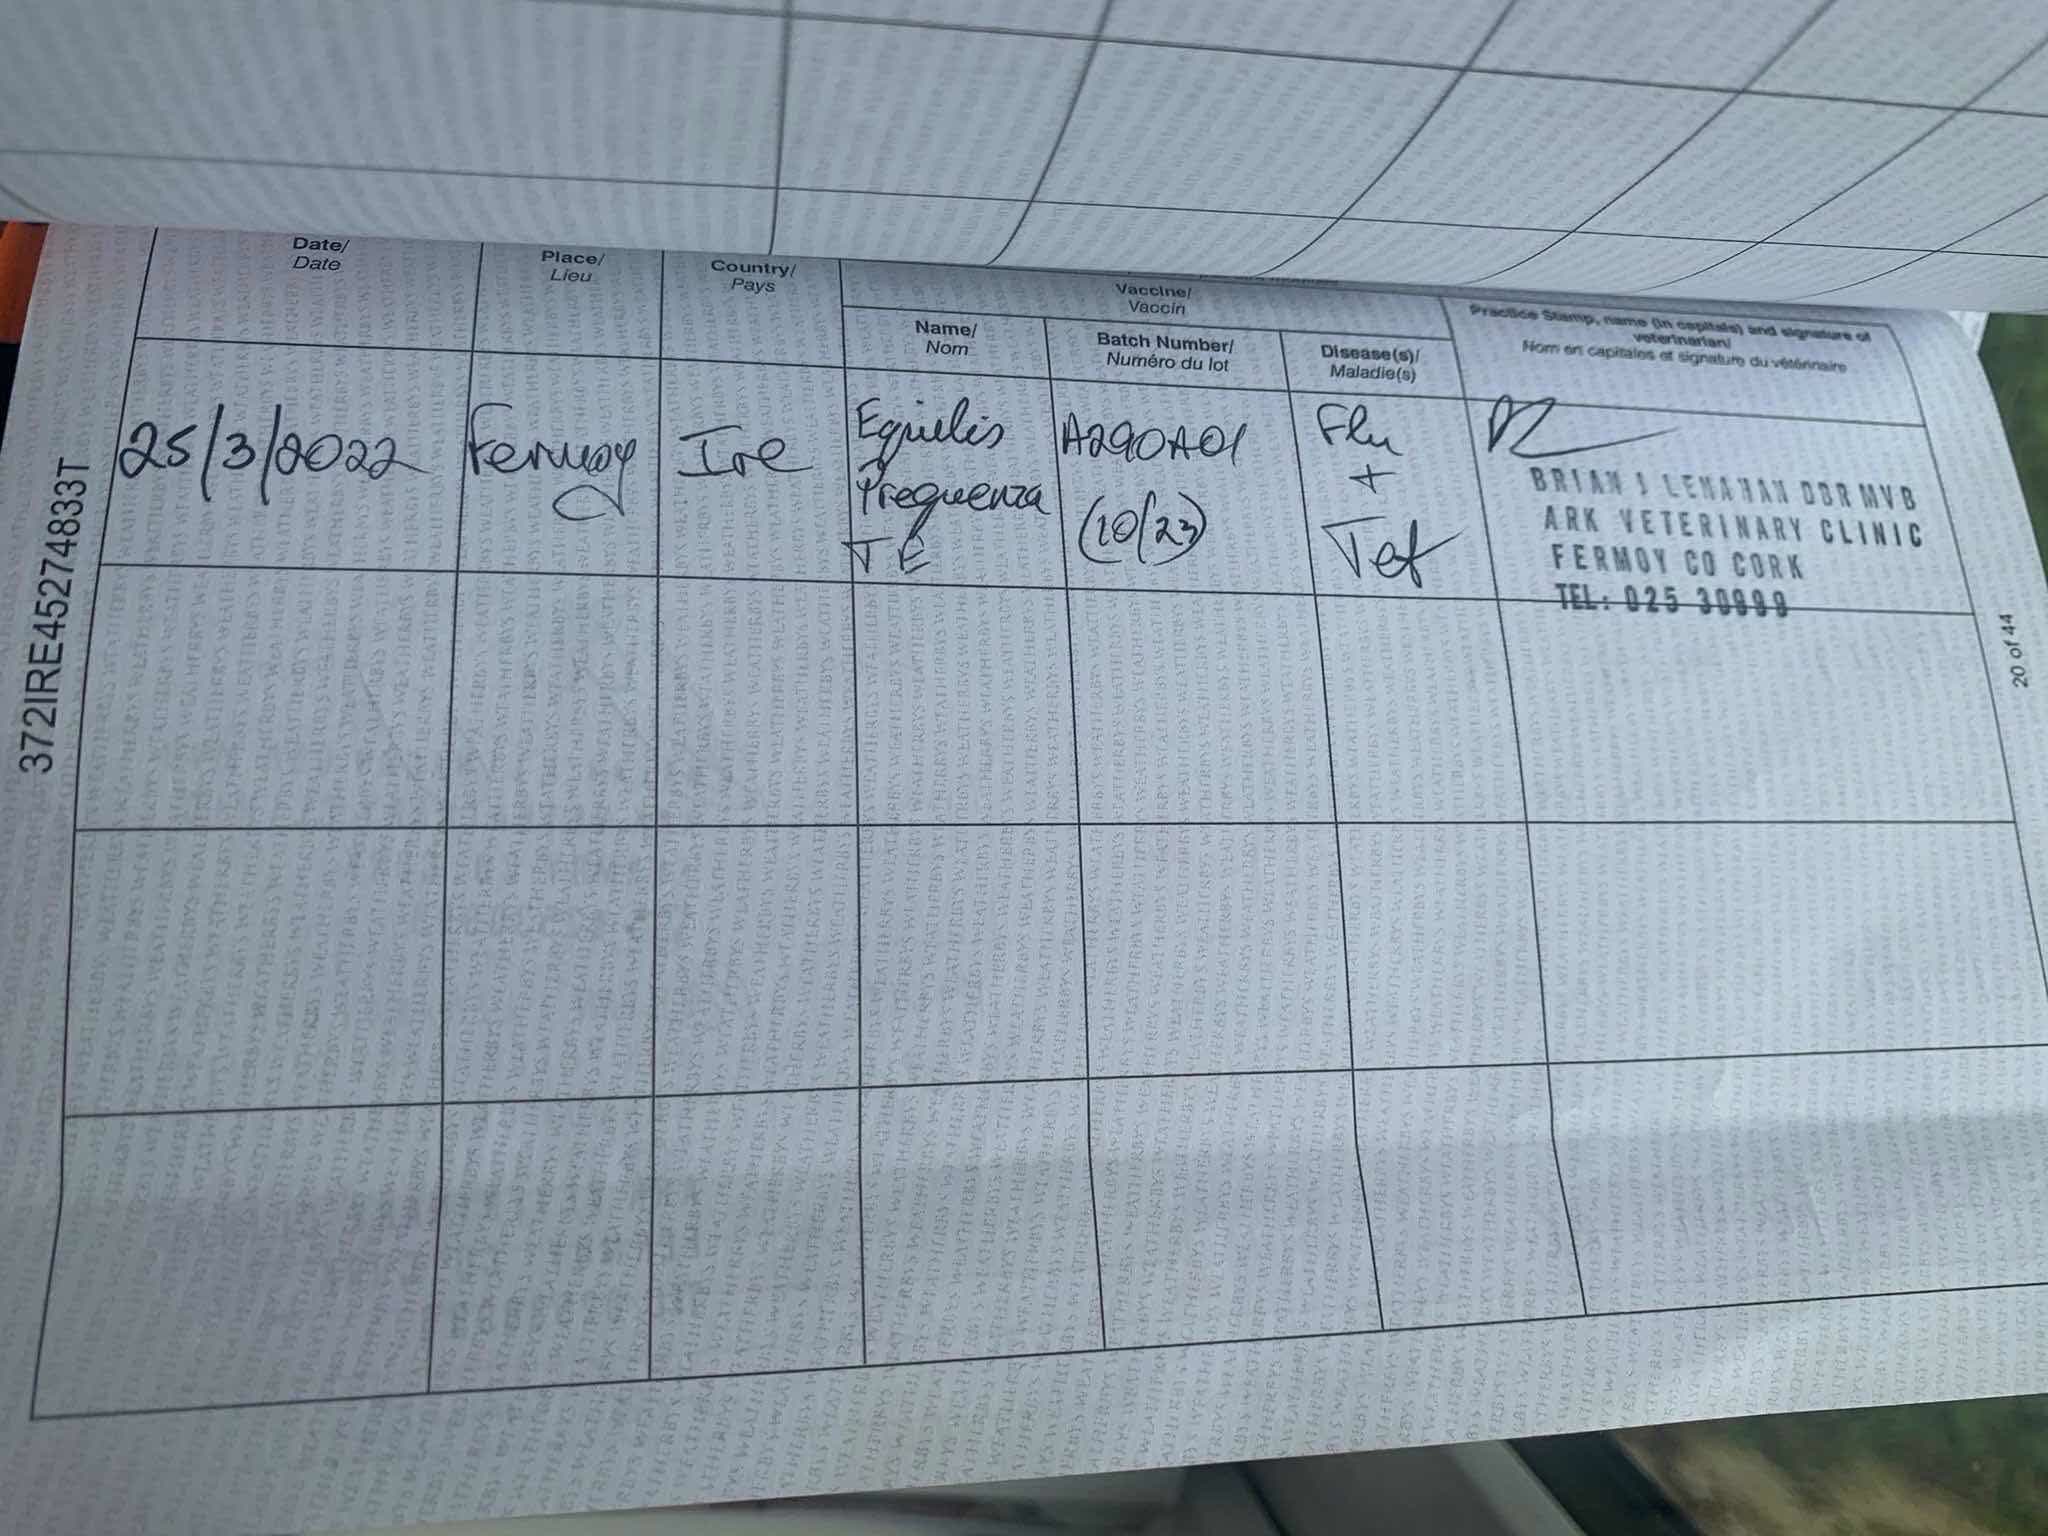 Date/
Date
Place/
Lieu
Country/
Pays
Vaccine/
Vaccin
Name/
Nom
Batch Number/
Numéro du lot
Disease(s)/
Maladie(s)
Practice Stamp, name (in capitals) and signature of
veterinarian/
Nom en capitales et signature du vétérinaire
25/3/2022
Fermoy
Ire
Equilis
Prequenza
TE
A290A01
(10/23)
Flu
+
Tet
BRIAN J LENAHAN DBR MVB
ARK VETERINARY CLINIC
FERMOY CO CORK
TEL: 025 30999
372IRE45274833T
20 of 44